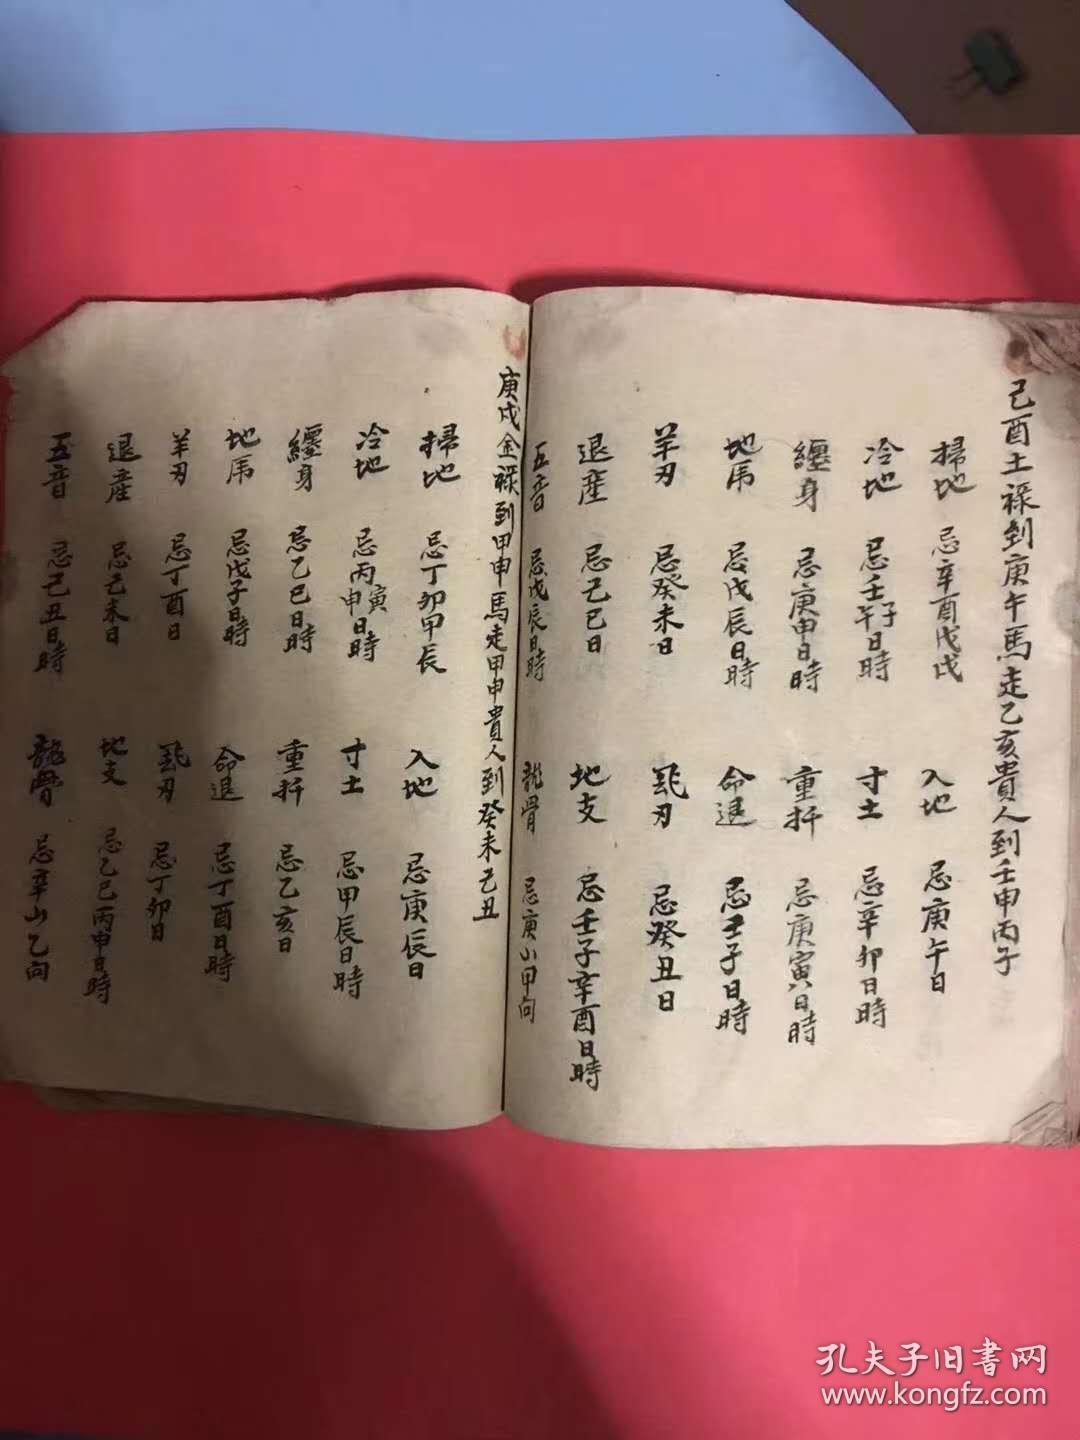 己酉土禄到庚午馬走乙亥貴人到壬申丙子
掃地 忌辛酉戊戌 入地 忌庚午日
冷地 忌壬子午日時 寸土 忌辛卯日時
纏身 忌庚申日時 重扦 忌庚寅日時
地馬 忌戊辰日時 命退 忌壬子日時
羊刃 忌癸未日 飛刃 忌癸丑日
退産 忌己巳日 地支 忌壬子辛酉日時
五音 忌戊辰日時 龍骨 忌庚山甲向
庚戌金禄到甲申馬走甲申貴人到癸未己丑
掃地 忌丁卯甲辰 入地 忌庚辰日
冷地 忌丙寅申日時 寸土 忌甲辰日時
纏身 忌乙巳日時 重扦 忌乙亥日
地馬 忌戊子日時 命退 忌丁酉日時
羊刃 忌丁酉日 飛刃 忌丁卯日
退産 忌己未日 地支 忌乙巳丙申日時
五音 忌己丑日時 龍骨 忌辛山乙向
孔夫子旧書网
www.kongfz.com